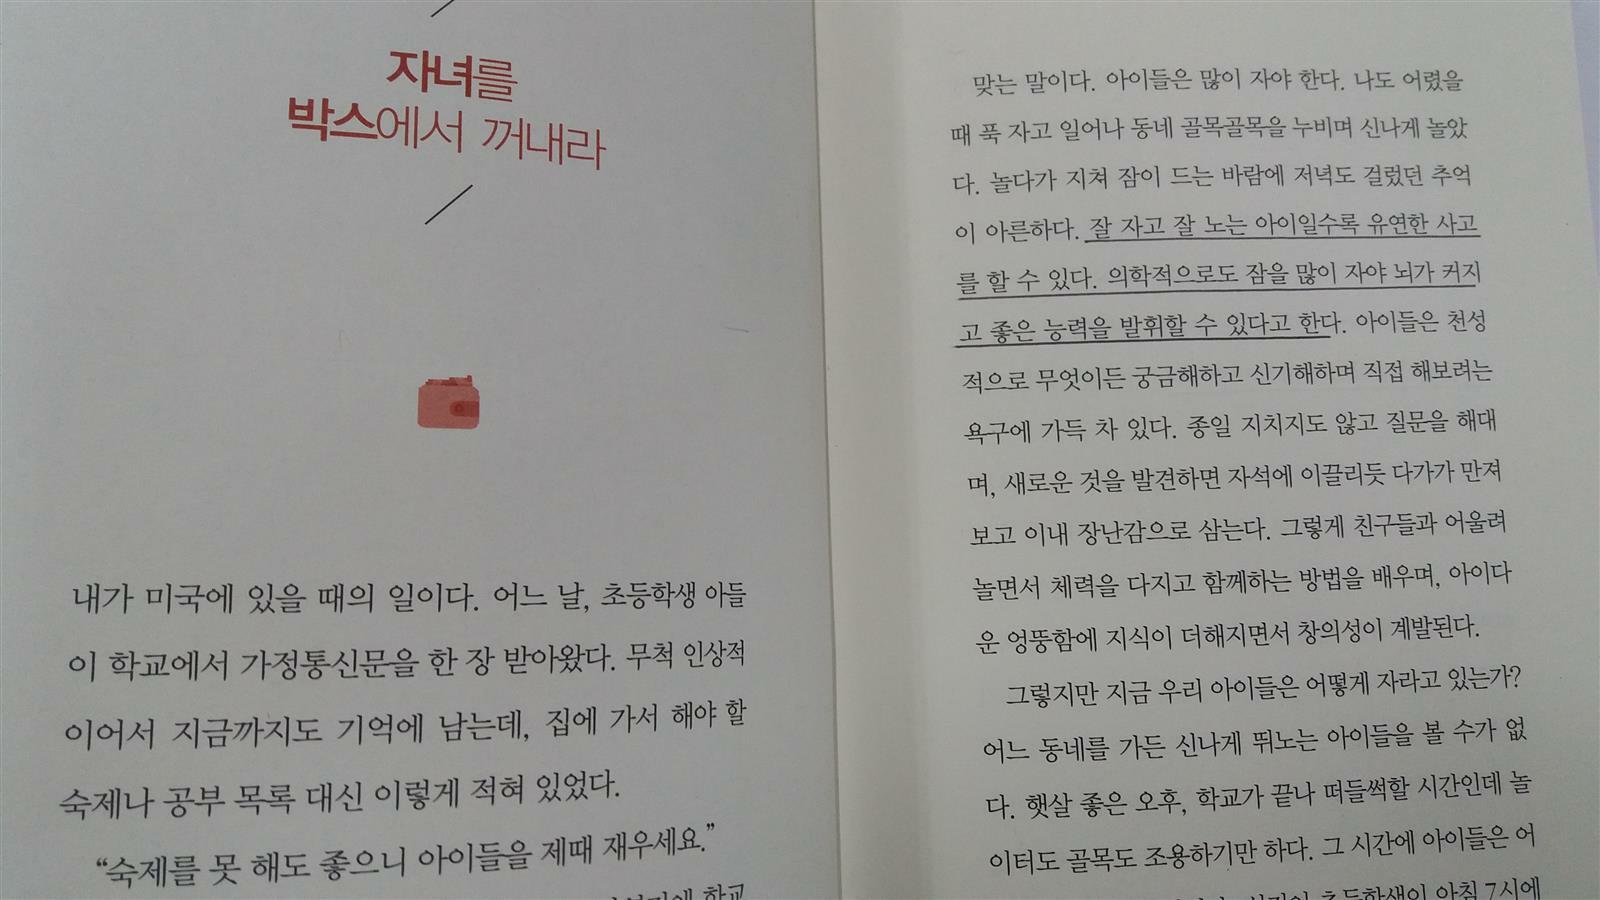 자녀를
박스에서 꺼내라
내가 미국에 있을 때의 일이다. 어느 날, 초등학생 아들
이 학교에서 가정통신문을 한 장 받아왔다. 무척 인상적
이어서 지금까지도 기억에 남는데, 집에 가서 해야 할
숙제나 공부 목록 대신 이렇게 적혀 있었다.
“숙제를 못 해도 좋으니 아이들을 제때 재우세요.”
학교
맞는 말이다. 아이들은 많이 자야 한다. 나도 어렸을
때 푹 자고 일어나 동네 골목골목을 누비며 신나게 놀았
다. 놀다가 지쳐 잠이 드는 바람에 저녁도 걸렀던 추억
이 아른하다. 잘 자고 잘 노는 아이일수록 유연한 사고
를 할 수 있다. 의학적으로도 잠을 많이 자야 뇌가 커지
고 좋은 능력을 발휘할 수 있다고 한다. 아이들은 천성
적으로 무엇이든 궁금해하고 신기해하며 직접 해보려는
욕구에 가득 차 있다. 종일 지치지도 않고 질문을 해대
며, 새로운 것을 발견하면 자석에 이끌리듯 다가가 만져
보고 이내 장난감으로 삼는다. 그렇게 친구들과 어울려
놀면서 체력을 다지고 함께하는 방법을 배우며, 아이다
운 엉뚱함에 지식이 더해지면서 창의성이 계발된다.
그렇지만 지금 우리 아이들은 어떻게 자라고 있는가?
어느 동네를 가든 신나게 뛰노는 아이들을 볼 수가 없
다. 햇살 좋은 오후, 학교가 끝나 떠들썩할 시간인데 놀
이터도 골목도 조용하기만 하다. 그 시간에 아이들은 어
초등학생이 아침 7시에